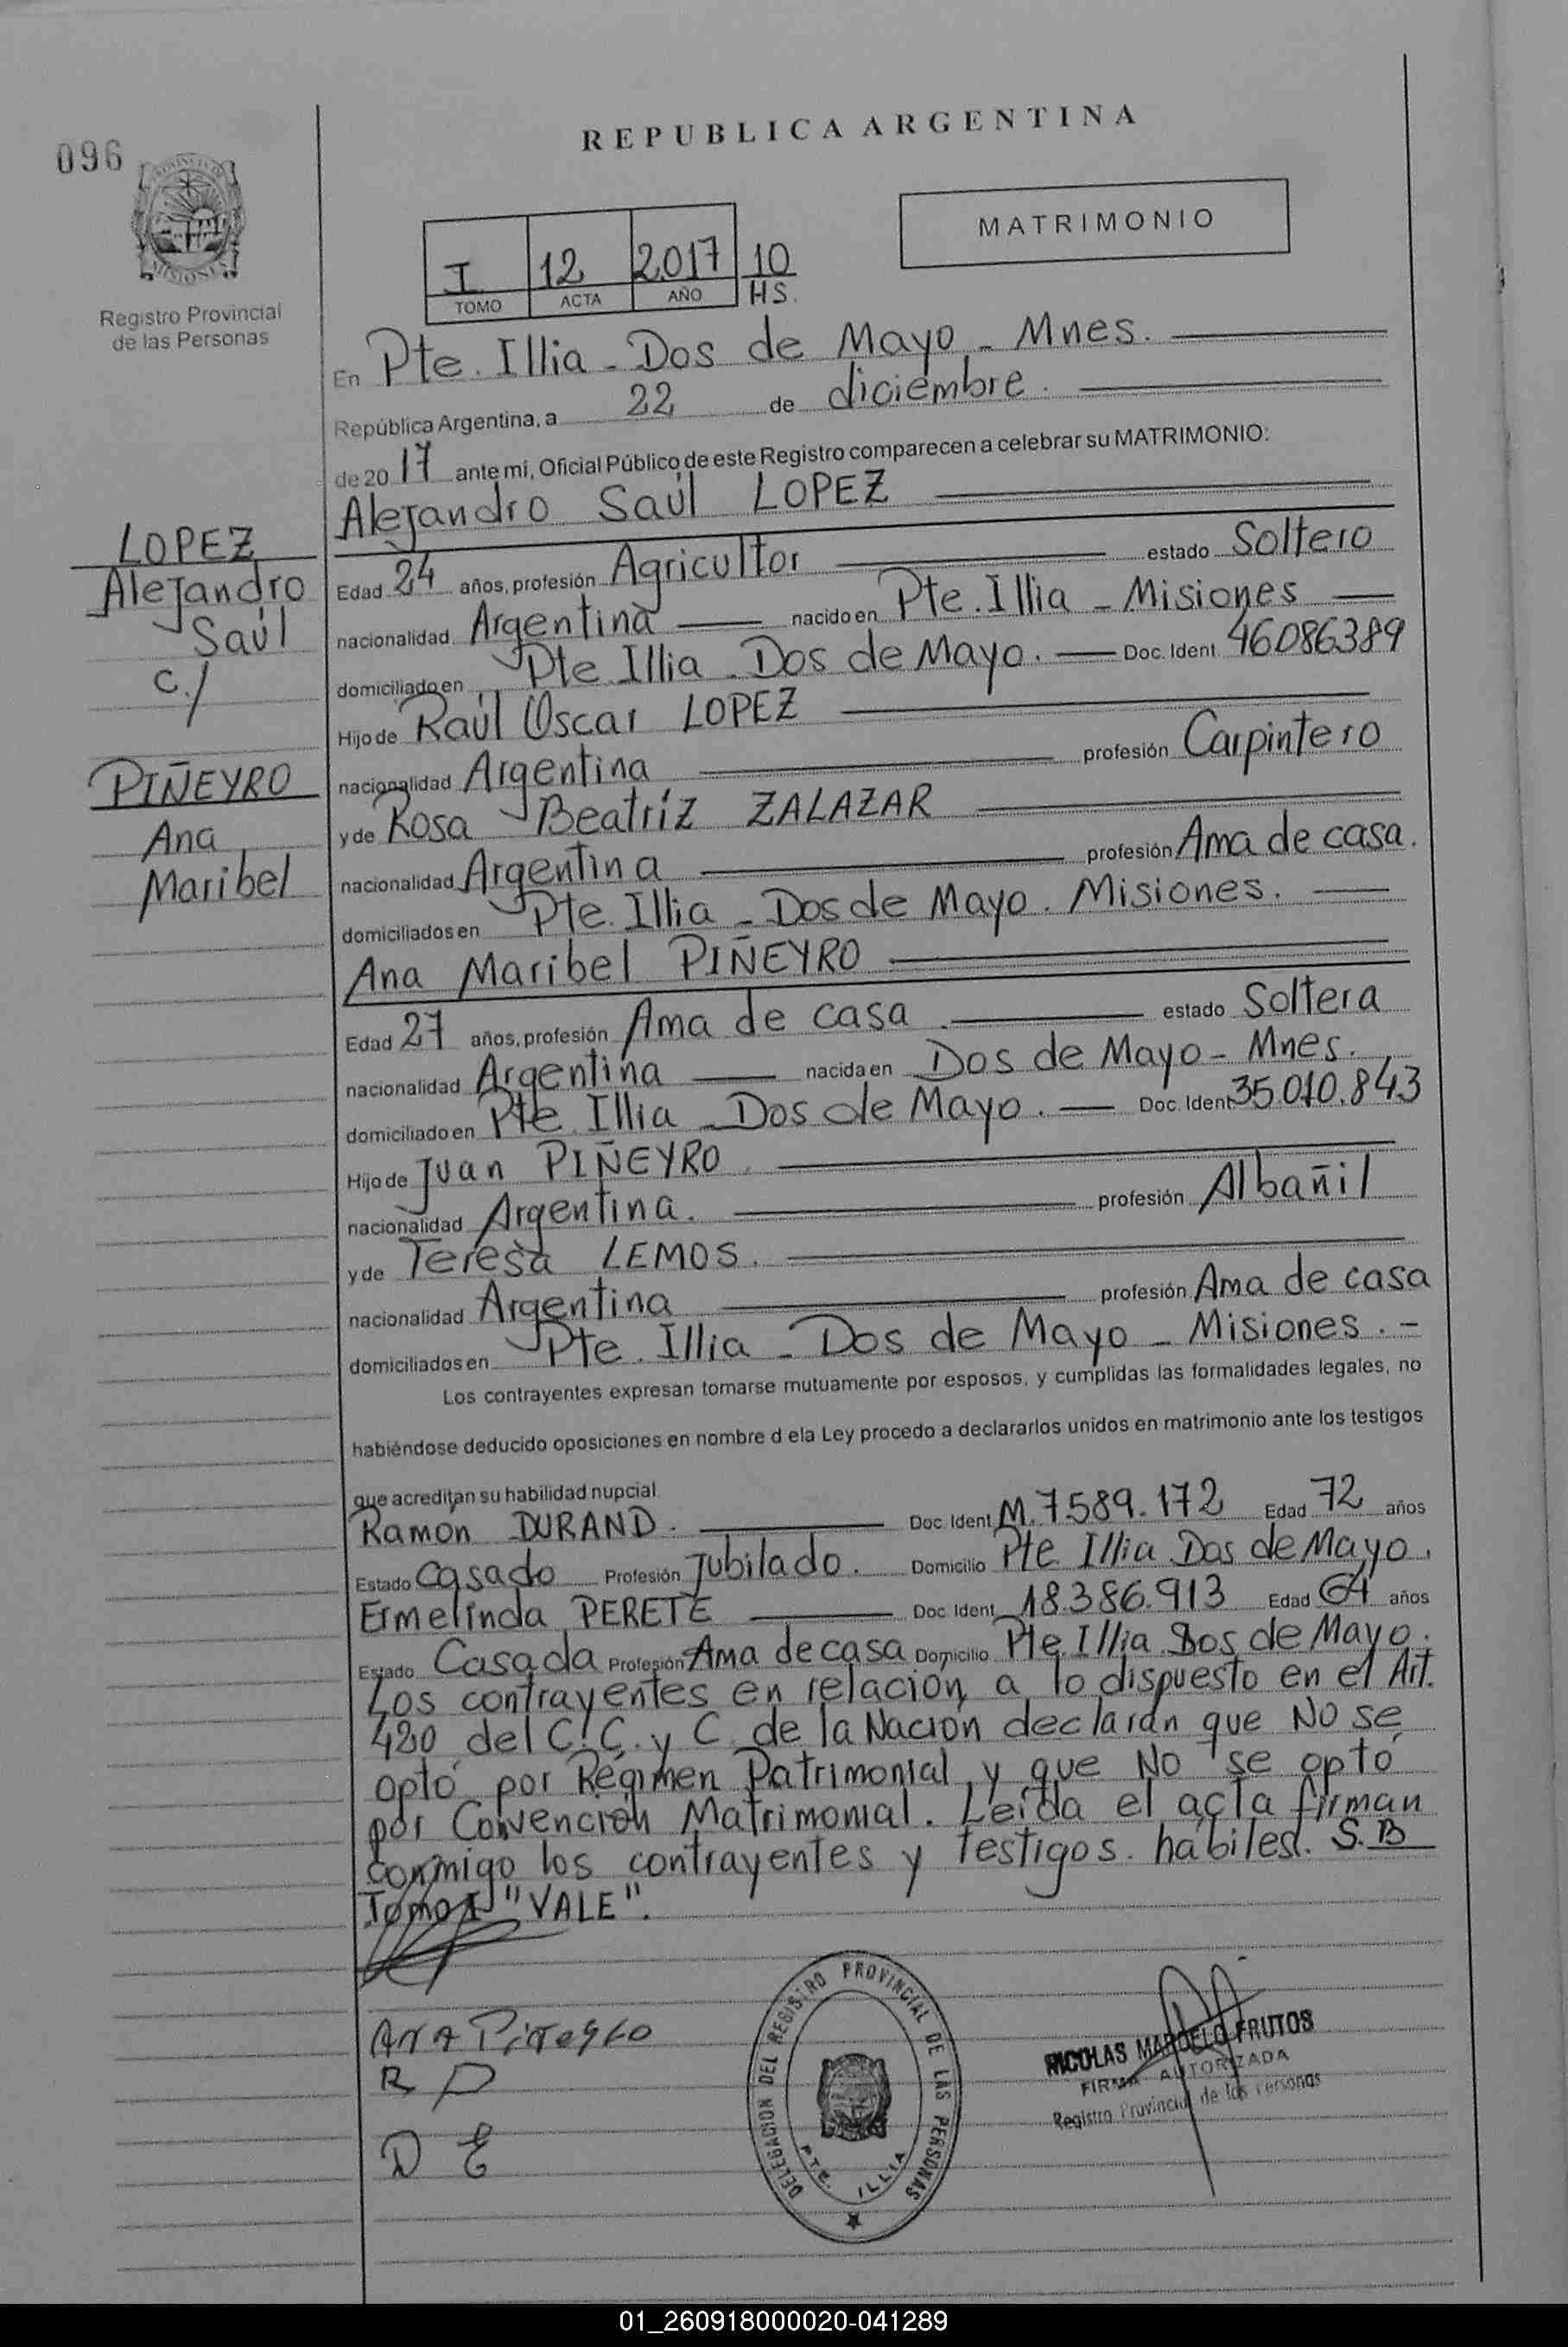 096
REPUBLICA ARGENTINA
MATRIMONIO
I 12 2017 10
TOMO ACTA AÑO HS.
Registro Provincial
de las Personas
En Pte. Illia - Dos de Mayo - Mnes.
República Argentina, a 22 de diciembre.
de 20 17 ante mi, Oficial Público de este Registro comparecen a celebrar su MATRIMONIO:
Alejandro Saúl LOPEZ
LOPEZ
Alejandro
Saúl
c./
PIÑEYRO
Ana
Maribel
Edad 24 años, profesión Agricultor estado Soltero
nacionalidad Argentina nacido en Pte. Illia - Misiones
domiciliado en Pte Illia - Dos de Mayo. Doc. Ident. 46086389
Hijo de Raúl Oscar LOPEZ
nacionalidad Argentina profesión Carpintero
y de Rosa Beatríz ZALAZAR
nacionalidad Argentina profesión Ama de casa.
domiciliados en Pte. Illia - Dos de Mayo. Misiones.
Ana Maribel PIÑEYRO
Edad 27 años, profesión Ama de casa estado Soltera
nacionalidad Argentina nacida en Dos de Mayo - Mnes.
domiciliado en Pte. Illia - Dos de Mayo. Doc. Ident 35.010.843
Hijo de Juan PIÑEYRO.
nacionalidad Argentina. profesión Albañil
y de Teresa LEMOS.
nacionalidad Argentina profesión Ama de casa
domiciliados en Pte. Illia - Dos de Mayo - Misiones. -
Los contrayentes expresan tomarse mutuamente por esposos, y cumplidas las formalidades legales, no
habiéndose deducido oposiciones en nombre d ela Ley procedo a declararlos unidos en matrimonio ante los testigos
que acreditan su habilidad nupcial
Ramón DURAND. Doc. Ident M. 7.589.172 Edad 72 años
Estado Casado Profesión Jubilado. Domicilio Pte Illia Dos de Mayo.
Ermelinda PERETE Doc. Ident 18.386.913 Edad 64 años
Estado Casada Profesión Ama de casa Domicilio Pte. Illia Dos de Mayo.
Los contrayentes en relación a lo dispuesto en el Art.
420 del C.C. y C. de la Nación declaran que NO se
optó por Régimen Patrimonial, y que NO se optó
por Convención Matrimonial. Leída el acta firman
conmigo los contrayentes y testigos hábiles. S.B
Tomo I "VALE".
ANA Piñeyro
R D
D E
DELEGACION DEL REGISTRO PROVINCIAL DE LAS PERSONAS
PTE. ILLIA
NICOLAS MARCELO FRUTOS
FIRMA AUTORIZADA
Registro Provincial de las Personas
01_260918000020-041289